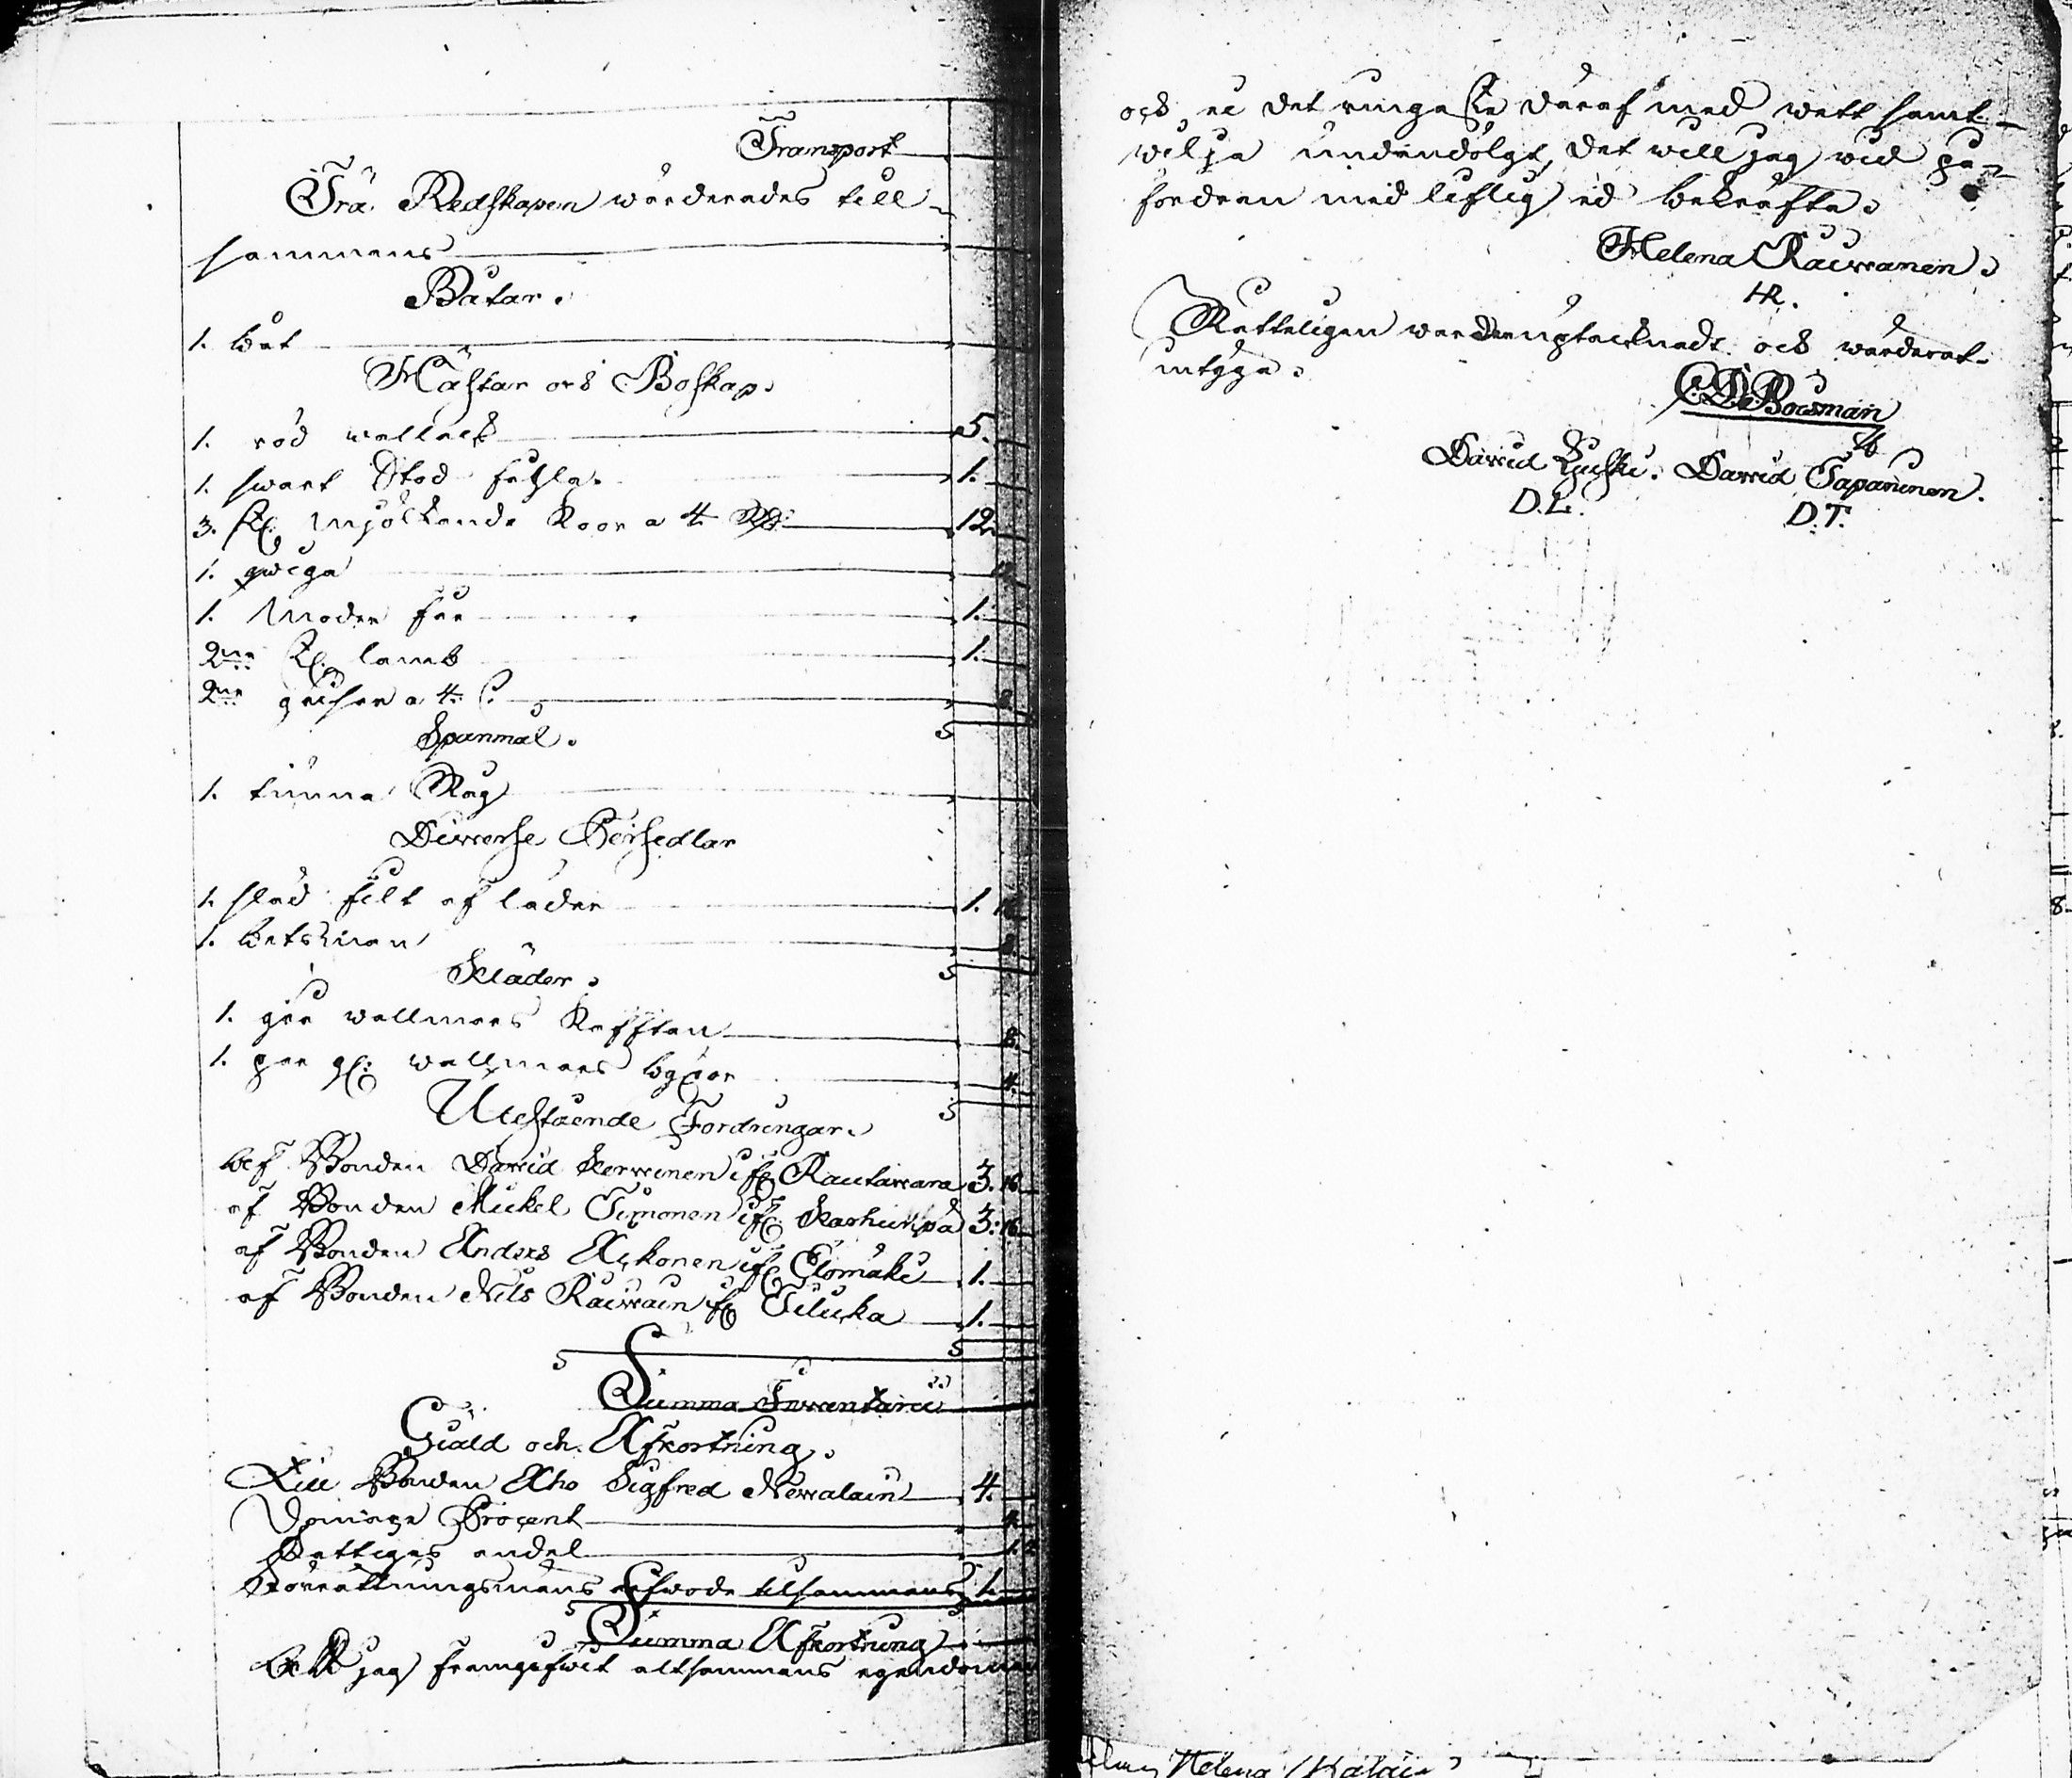 Transport
Trä Redskapen wärderades till-
sammans
Båtar.
1. båt
Hästar och Boskap.
1. röd wallack 5.
1. swart Stod fåhla 1.
3. st: mjölkande Koor a 4 Rd: 12.
1. qwiga
1. Moder får 1.
2ne st: lamb 1.
2ne grisar a 4 s. 8.
Spanmål.
1. tunna Råg
Diwerse Persedlar
1. släd fält af läder 1. 16
1. betsman 8.
Kläder.
1. grå wallmars Kafftan 8.
1. par gl: wallmars byxor 4.
Utestående Fordringar.
Af Bonden Dawid Kerwinen i fr: Rautawara 3. 16
af Bonden Mickel Timonen ifr: Karhunpä 3: 16
af Bonden Anders Ackonen ifr: Elomäki 1.
af Bonden Nils Räiwäin fr: Tiluka 1.
Summa Inwentarii
Giäld och Afkortning.
Till Bonden Aho Sigfred Newalain 4.
Procent
Fattigas andel
Förrättningsmäns arfwode tilsammans 1.
Summa Afkortning
Att jag framgifwit altsammans egendomen
och ei det ringaste däraf med wett samt-
wilja undandölgt, det will jag wid på-
fordran med liflig ed bekräfta.
Helena Räiwänen.
HR.
Rätteligen warder uptecknadt och wärderat.
intyga.
C: D: Boisman
Dawid . Dawid Tapaninen.
D. L. D. T.
Helena